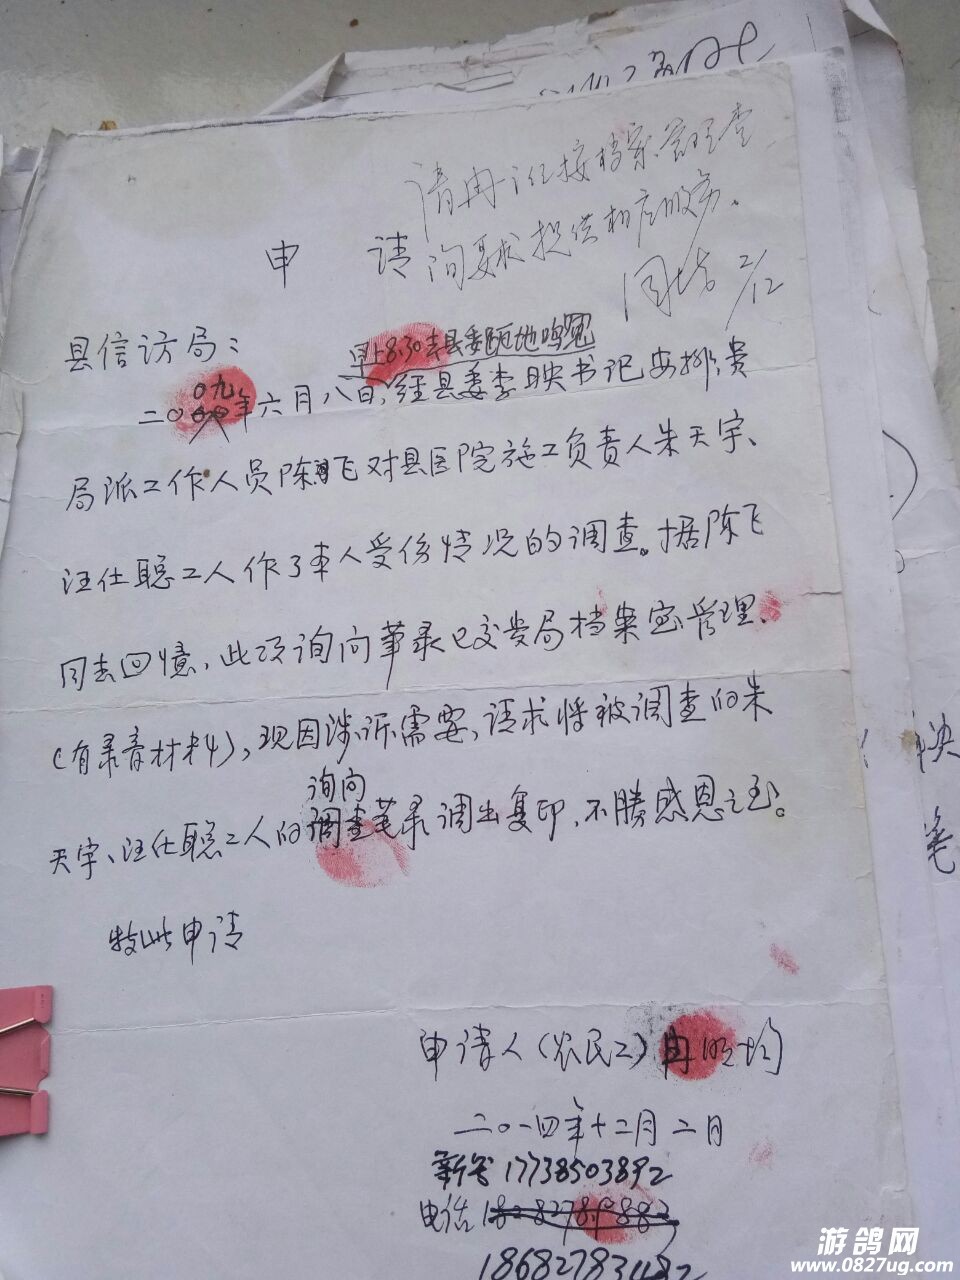 请冉 按档案管理查
询要求提供相应服务。
周 2/12
申 请
县信访局：
早上8.30去县委跪地鸣冤
二〇〇九年六月八日，经县委李映书记安排，贵
局派工作人员陈飞对县医院施工负责人朱天宇、
汪仕聪工人作了本人受伤情况的调查。据陈飞
同志回憶，此项询问笔录已交贵局档案室管理、
（有录音材料），现因涉诉需要，请求将被调查的朱
询问
天宇、汪仕聪工人的调查笔录调出复印，不勝感恩之至。
特此申请
申请人（农民工）冉 均
二〇一四年十二月二日
新号 17738503892
电话
游鸽网
www.0827ug.com
决
笔